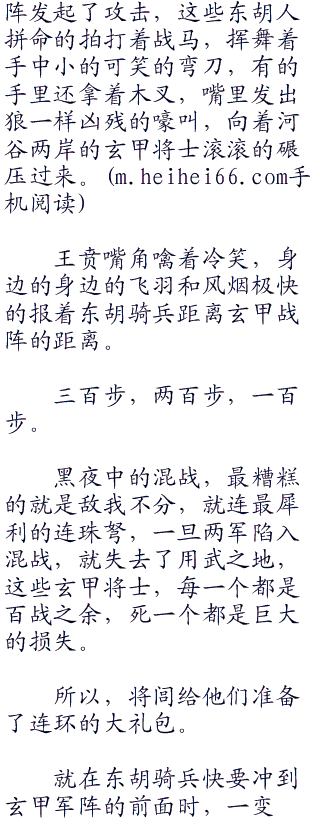 阵发起了攻击，这些东胡人
拼命的拍打着战马，挥舞着
手中小的可笑的弯刀，有的
手里还拿着木叉，嘴里发出
狼一样凶残的嚎叫，向着河
谷两岸的玄甲将士滚滚的碾
压过来。(m.heihei66.com手
机阅读)
王贲嘴角噙着冷笑，身
边的身边的飞羽和风烟极快
的报着东胡骑兵距离玄甲战
阵的距离。
三百步，两百步，一百
步。
黑夜中的混战，最糟糕
的就是敌我不分，就连最犀
利的连珠弩，一旦两军陷入
混战，就失去了用武之地，
这些玄甲将士，每一个都是
百战之余，死一个都是巨大
的损失。
所以，将闾给他们准备
了连环的大礼包。
就在东胡骑兵快要冲到
玄甲军阵的前面时，一变